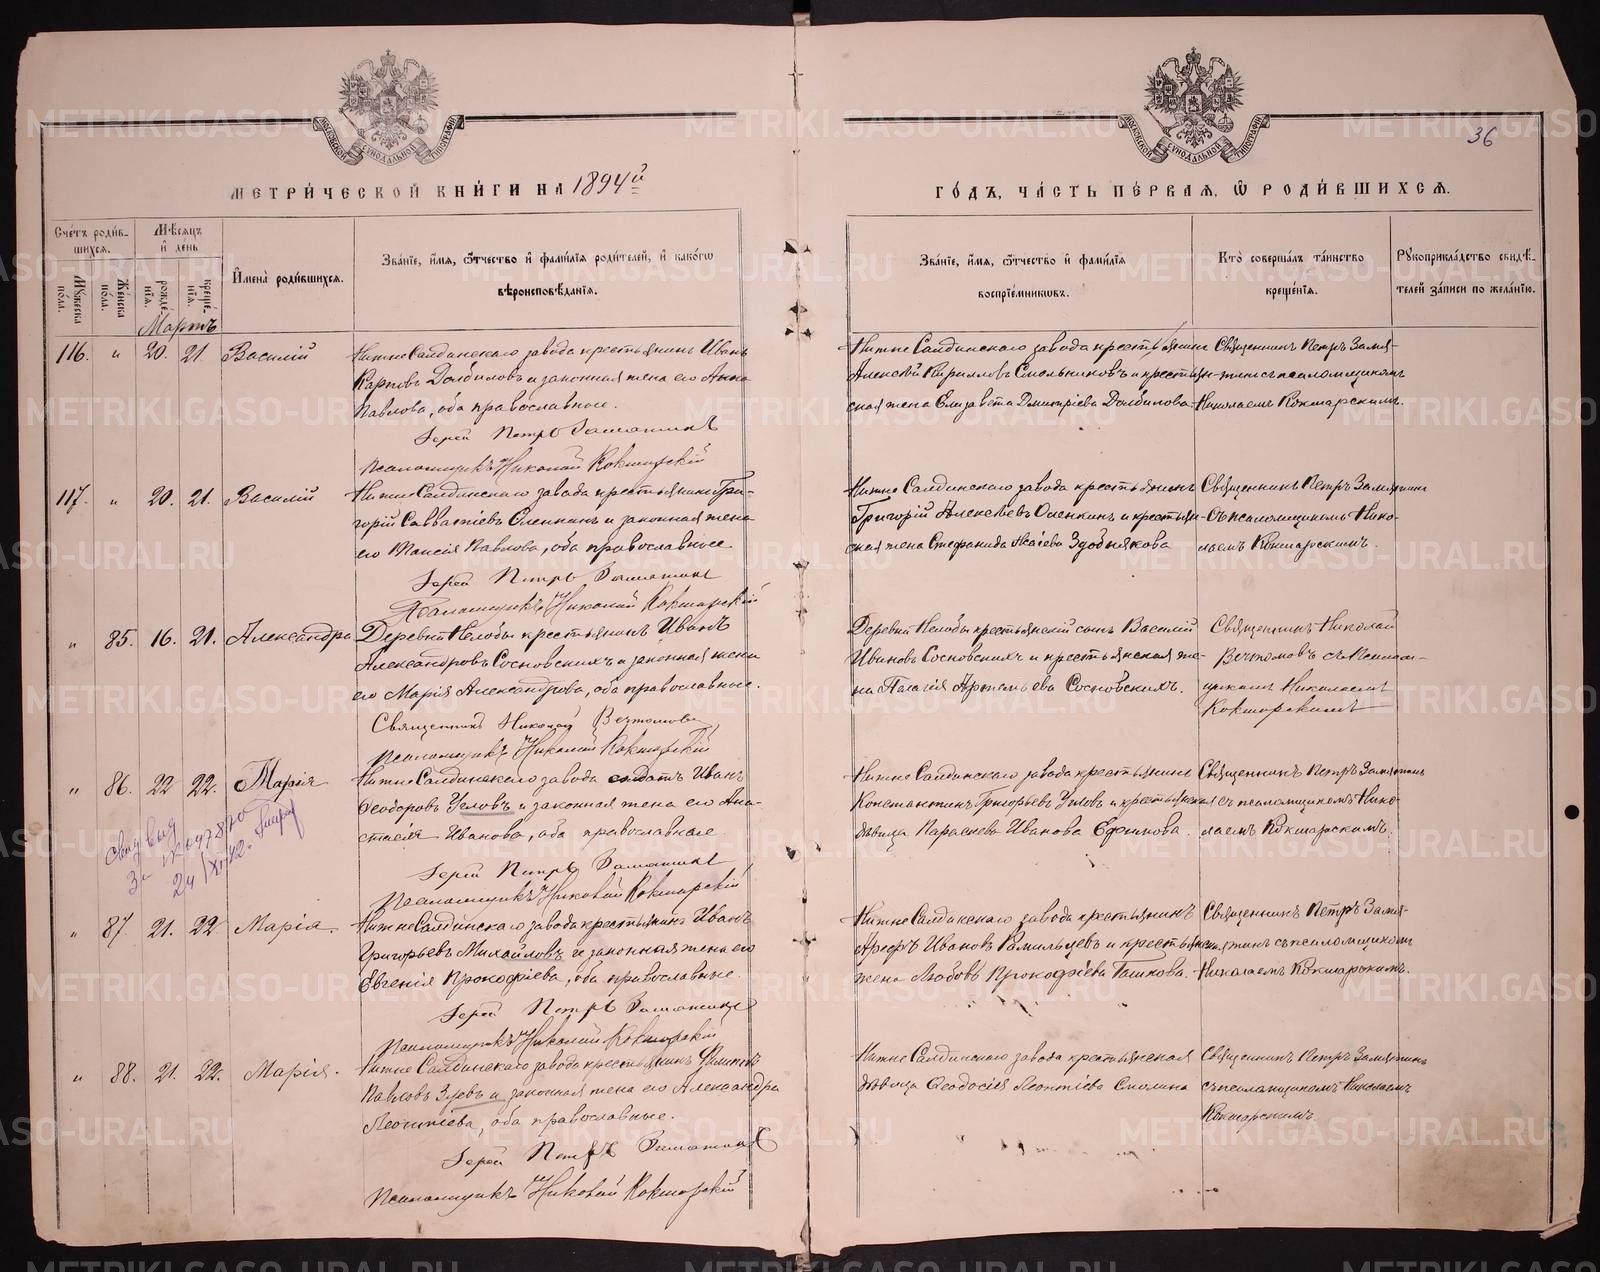 МЕТРИ́ЧЕСКОЙ КНИ́ГИ НА 1894й
ГО́ДЪ, ЧА́СТЬ ПЕ́РВАЯ, Ѿ РОДИ́ВШИХСЯ.
36
МОСКОВСКОЙ СУНОДАЛЬНОЙ ТИПОГРАФІИ
МОСКОВСКОЙ СУНОДАЛЬНОЙ ТИПОГРАФІИ
Сче́тъ роди́в-
шихся.
Му́жеска по́ла.
Же́нска по́ла.
Мѣ́сяцъ
и де́нь
рожде́-
нія.
креще́-
нія.
Мартъ
Имена̀ роди́вшихся.
Зва́ніе, и́мя, о́тчество и фами́лія роди́телей, и како́гѡ
вѣроисповѣ́данія.
Зва́ніе, и́мя, о́тчество и фами́лія
воспріе́мниковъ.
Кто̀ соверша́лъ та́инство
креще́нія.
Рукоприкла́дство свидѣ́-
телей за́писи по жела́нію.
116. " 20. 21. Василій
Нижне Салдинскаго завода крестьянинъ Иванъ
Карповъ Долбиловъ и законная жена его Анна
Павлова, оба православные.
Іерей Петръ Замятинъ
Псаломщикъ Николай Кокшарскій
Нижне Салдинскаго завода крестьянинъ
Алексѣй Кирилловъ Смольниковъ и крестьян-
ская жена Елизавета Дмитріева Долбилова.
Священникъ Петръ Замя-
тинъ съ псаломщикомъ
Николаемъ Кокшарскимъ.
117. " 20. 21. Василій
Нижне Салдинскаго завода крестьянинъ Гри-
горій Савватіевъ Оленкинъ и законная жена
его Таисія Павлова, оба православные
Іерей Петръ Замятинъ
Псаломщикъ Николай Кокшарскій
Нижне Салдинскаго завода крестьянинъ
Григорій Алексѣевъ Оленкинъ и крестьян-
ская жена Стефанида Исаіева Здобнякова
Священникъ Петръ Замятинъ
Съ псаломщикомъ Нико-
лаемъ Кокшарскимъ.
" 85. 16. 21. Александра
Деревни Нелобы крестьянинъ Иванъ
Александровъ Сосновскихъ и законная жена
его Марія Александрова, оба православные.
Священникъ Николай Вечтомовъ
Псаломщикъ Николай Кокшарскій
Деревни Нелобы крестьянскій сынъ Василій
Ивановъ Сосновскихъ и крестьянская же-
на Пелагія Артемьева Сосновскихъ.
Священникъ Николай
Вечтомовъ съ псалом-
щикомъ Николаемъ
Кокшарскимъ
" 86. 22 22. Марія
Нижне Салдинскаго завода солдатъ Иванъ
Ѳеодоровъ Угловъ и законная жена его Ана-
стасія Иванова, оба православные
Іерей Петръ Замятинъ
Псаломщикъ Николай Кокшарскій
Нижне Салдинскаго завода крестьянинъ
Константинъ Григорьевъ Угловъ и крестьянская
дѣвица Параскева Иванова Ефимова.
Священникъ Петръ Замятинъ
съ псаломщикомъ Нико-
лаемъ Кокшарскимъ.
" 87. 21. 22. Марія.
Нижне Салдинскаго завода крестьянинъ Иванъ
Григорьевъ Михайловъ и законная жена его
Евгенія Прокофіева, оба православные.
Іерей Петръ Замятинъ
Псаломщикъ Николай Кокшарскій
Нижне Салдинскаго завода крестьянинъ
Ивановъ и крестьянская
жена Любовь Прокофіева
Священникъ Петръ Замя-
тинъ съ псаломщикомъ
Николаемъ Кокшарскимъ.
" 88. 21. 22. Марія.
Нижне Салдинскаго завода крестьянинъ Филиппъ
Павловъ Зуевъ и законная жена его Александра
Леонтіева, оба православные.
Іерей Петръ Замятинъ
Псаломщикъ Николай Кокшарскій
Нижне Салдинскаго завода крестьянская
дѣвица Ѳеодосія Леонтіева Смолина
Священникъ Петръ Замятинъ
съ псаломщикомъ Николаемъ
Кокшарскимъ
METRIKI.GASO-URAL.RU